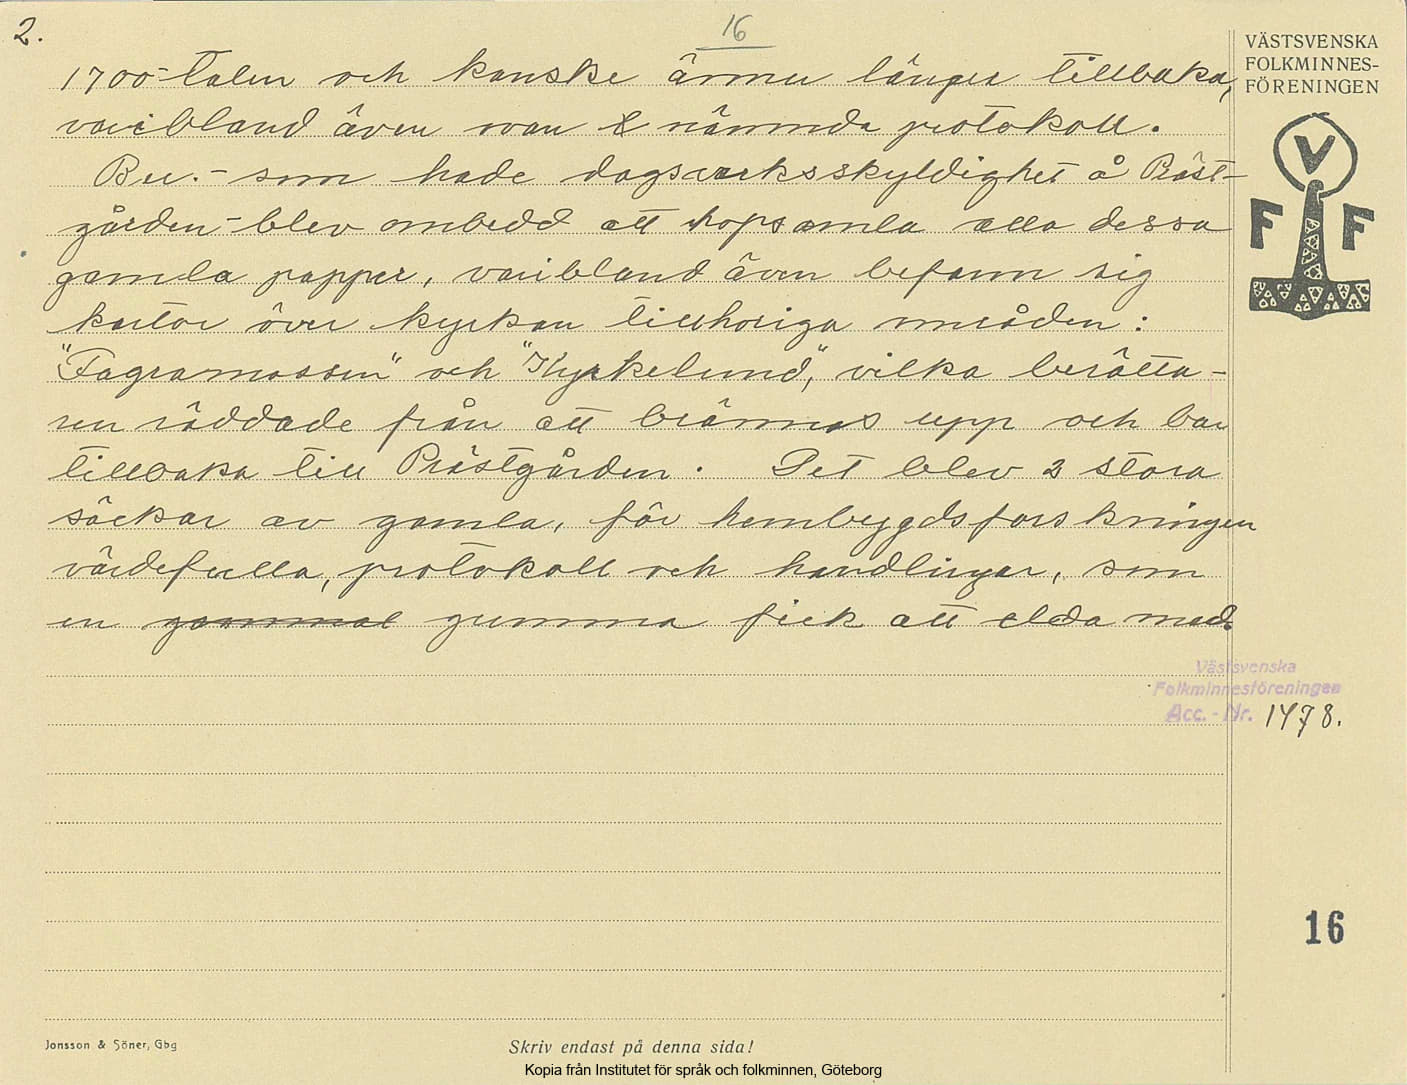 2.
16
VÄSTSVENSKA
FOLKMINNES-
FÖRENINGEN
V
F F
1700-talen och kanske ännu längre tillbaka,
varibland även ovan nämnda protokoll.
Ber.- som hade dagsverksskyldighet å Präst-
gården - blev ombedd att hopsamla alla dessa
gamla papper, varibland även befann sig
kartor över kyrkan tillhöriga områden:
"Fagramossen" och "Kyrkelund", vilka berätta-
ren räddade från att brännas upp och bar
tillbaka till Prästgården. Det blev 2 stora
säckar av gamla, för hembygdsforskningen
värdefulla, protokoll och handlingar, som
en gammal gumma fick att elda med.
Västsvenska
Folkminnesföreningen
Acc. - Nr. 1478.
16
Jonsson & Söner, Gbg
Skriv endast på denna sida!
Kopia från Institutet för språk och folkminnen, Göteborg